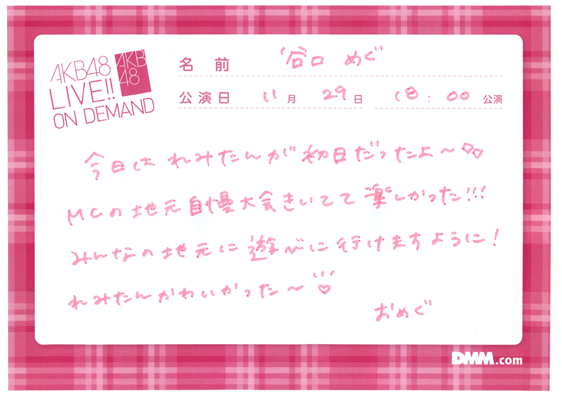 AKB48
LIVE!!
ON DEMAND
AKB
48
名前 谷口 めぐ
公演日 11月 29日 18:00公演
今日は れみたんが 初日だったよ〜♡♡
MCの地元自慢大会きいてて楽しかった!!!
みんなの地元に遊べに行けますように!
れみたんかわいかった〜♡
おめぐ
DMM.com